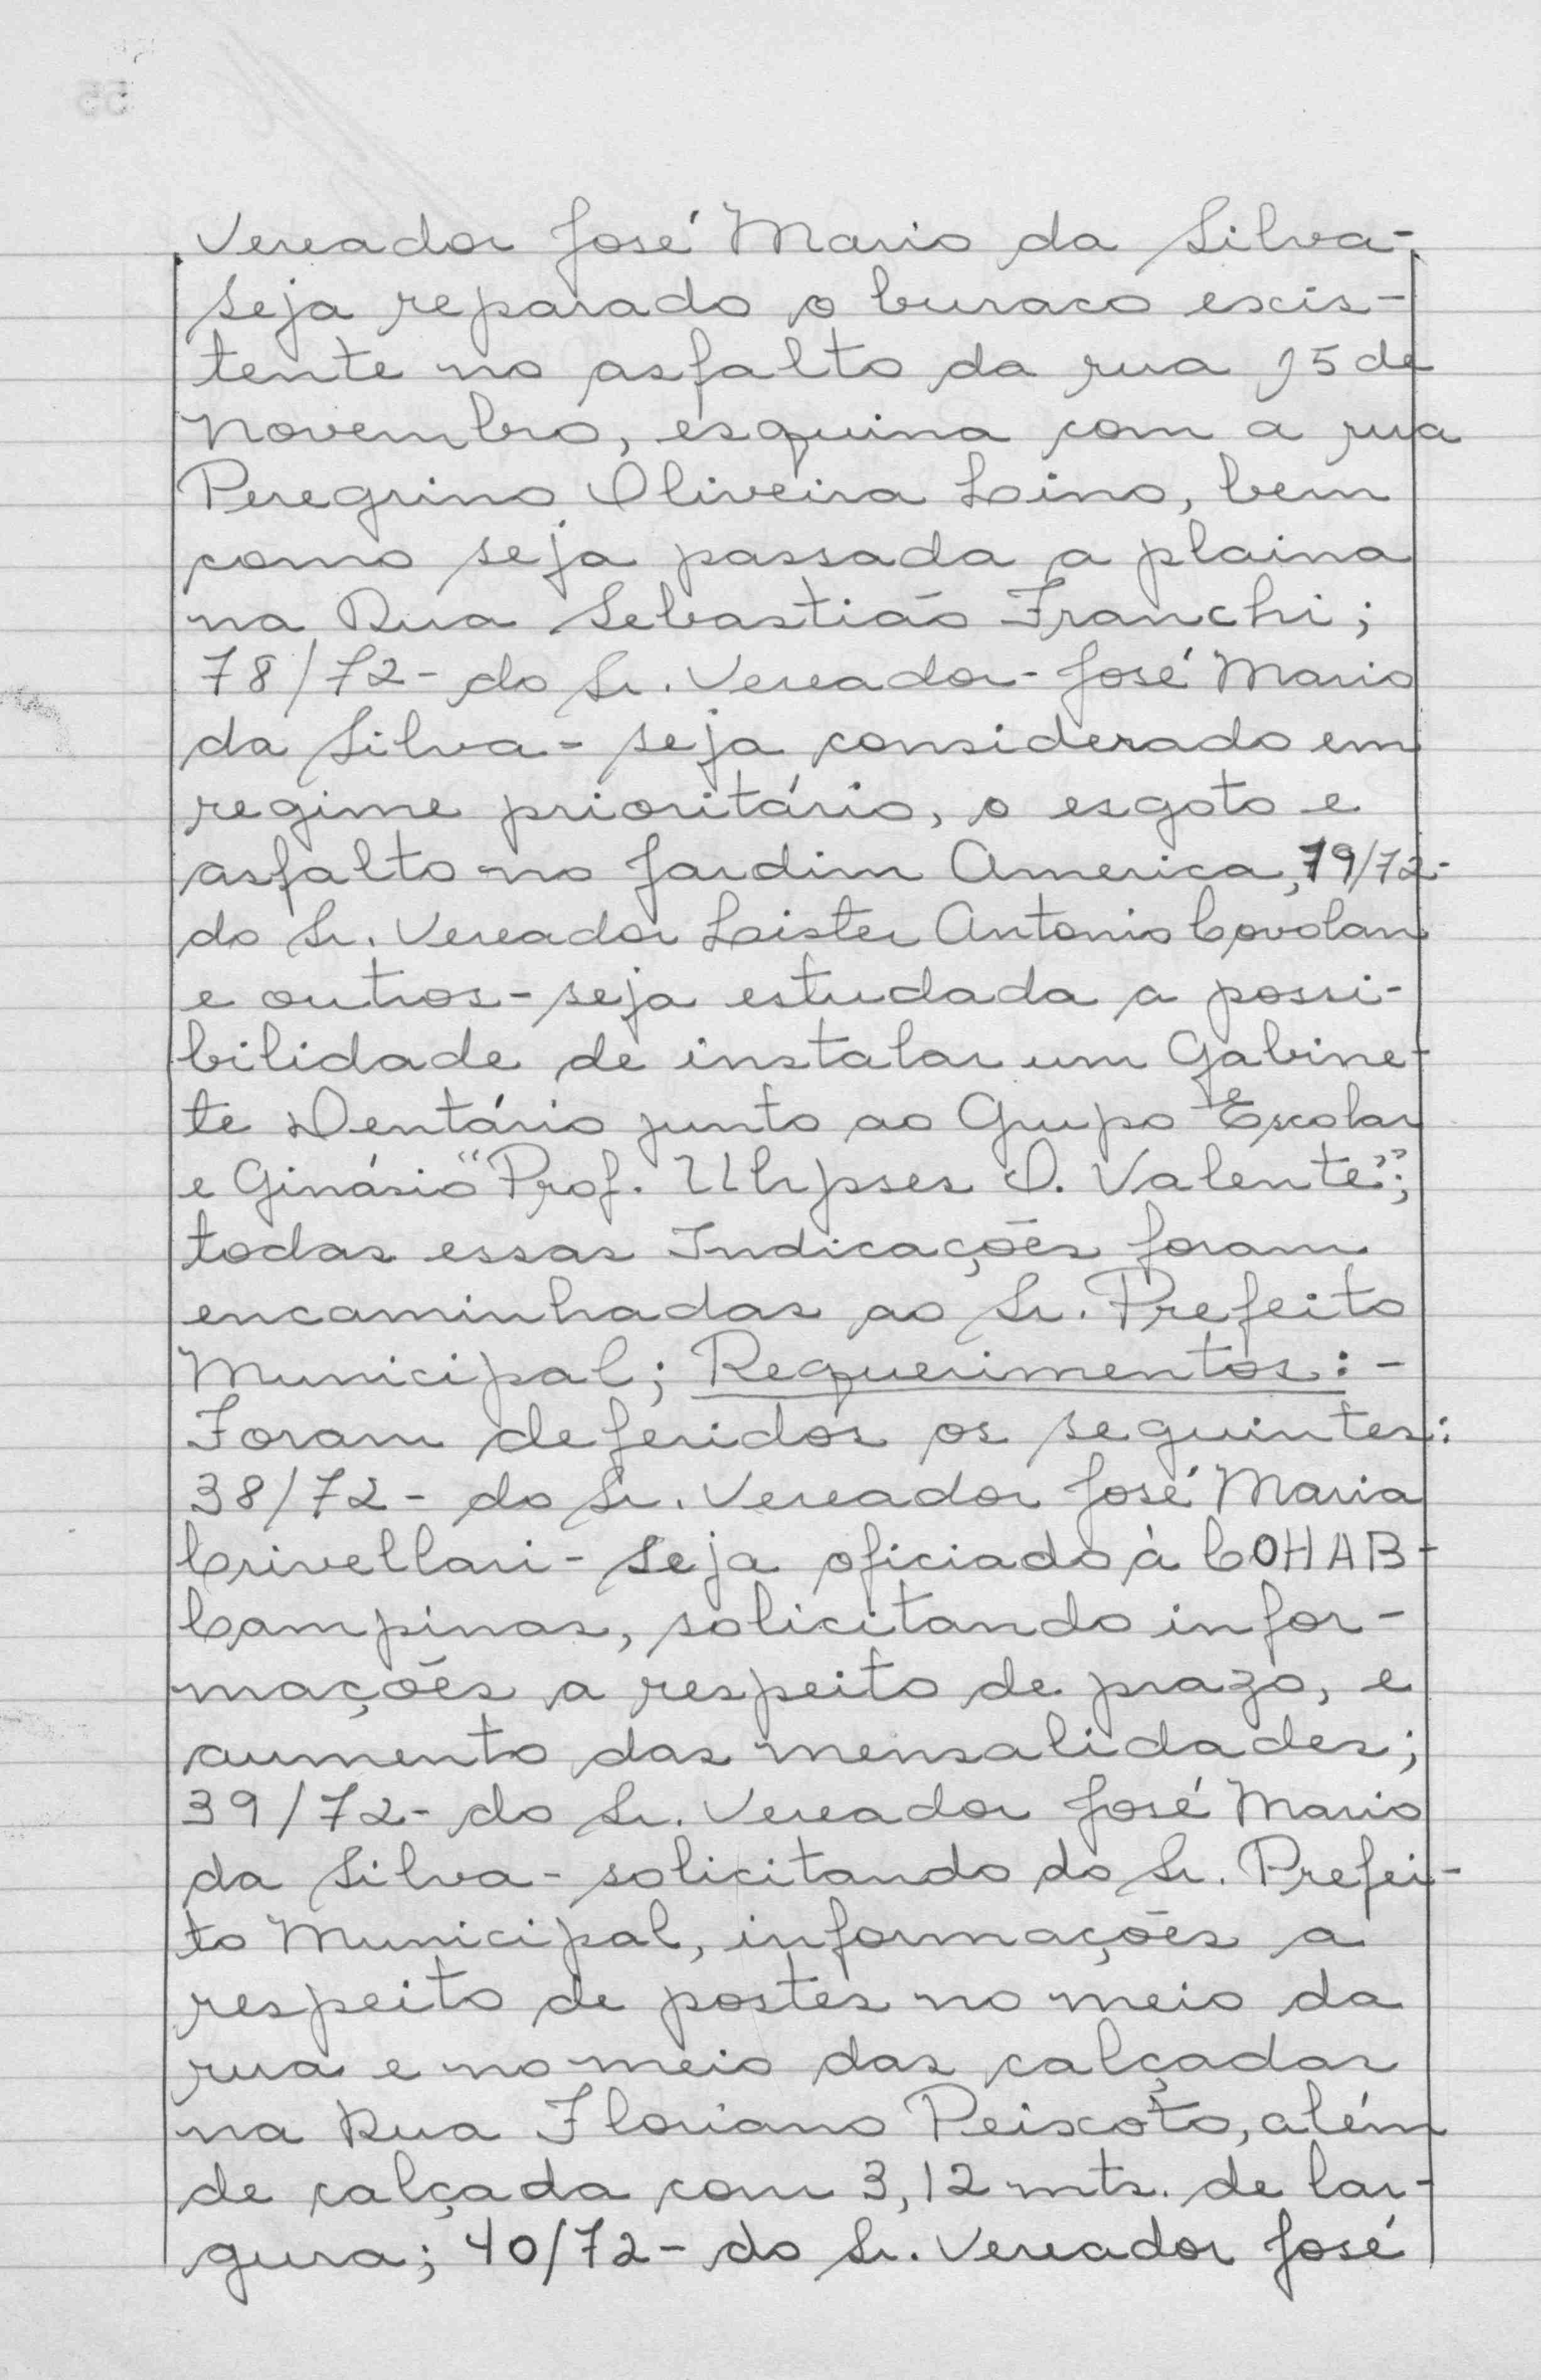 Vereador José Mario da Silva-
seja reparado o buraco exis-
tente no asfalto da rua 15 de
Novembro, esquina com a rua
Peregrino Oliveira Lino, bem
como seja passada a plaina
na Rua Sebastião Franchi;
78/72- do Sr. Vereador- José Mario
da Silva- seja considerado em
regime prioritário, o esgoto e
asfalto no Jardim America, 79/72-
do Sr. Vereador Lister Antonio Covolan
e outros- seja estudada a possi-
bilidade de instalar um Gabine-
te Dentário junto ao Grupo Escolar
e Ginásio "Prof. Ulysses O. Valente";
todas essas Indicações foram
encaminhadas ao Sr. Prefeito
Municipal; Requerimentos:-
Foram deferidos os seguintes:
38/72- do Sr. Vereador José Maria
Crivellari- Seja oficiado à COHAB-
Campinas, solicitando infor-
mações a respeito de prazo, e
aumento das mensalidades;
39/72- do Sr. Vereador José Mario
da Silva- solicitando do Sr. Prefei-
to Municipal, informações a
respeito de postes no meio da
rua e no meio das calçadas
na Rua Floriano Peixoto, além
de calçada com 3,12 mts. de lar-
gura; 40/72- do Sr. Vereador José